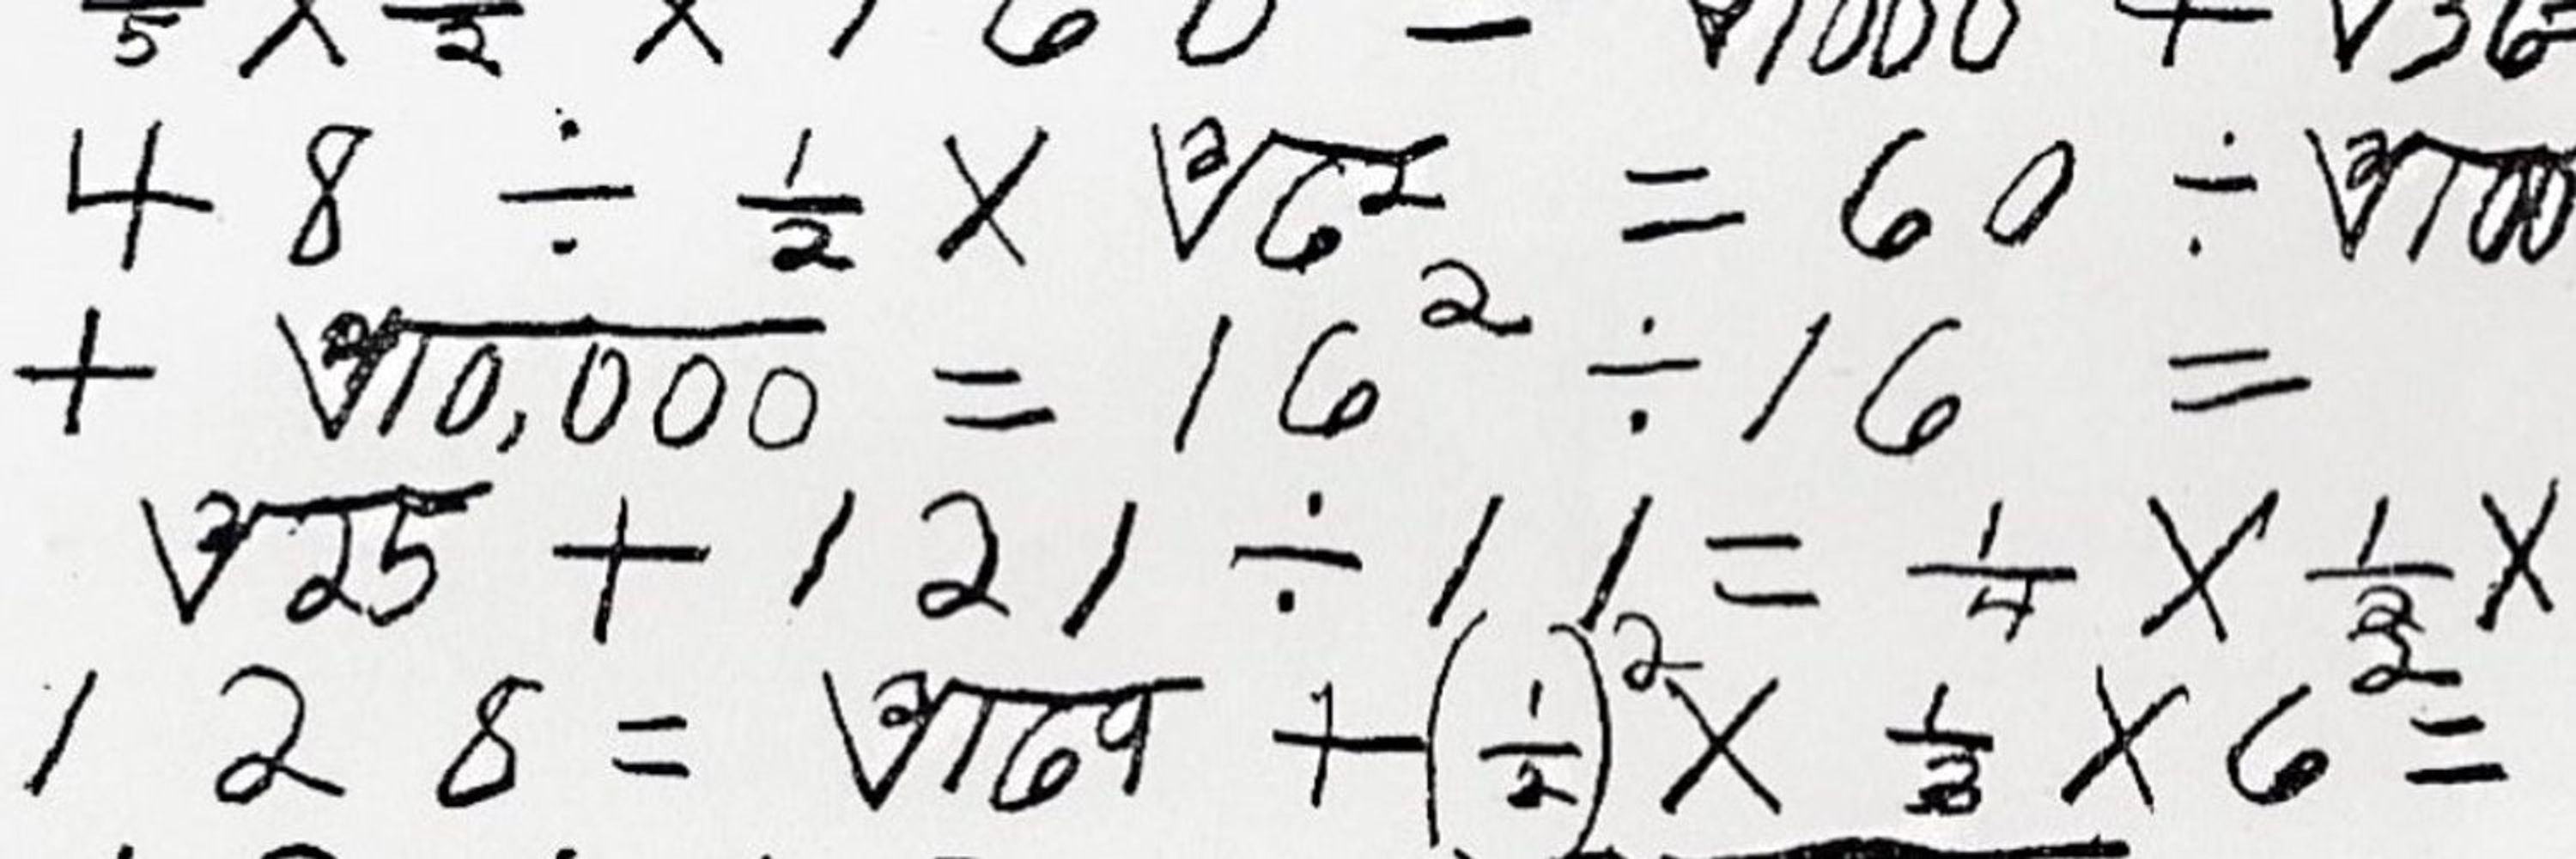 /5 × /2 × 160 − ∛1000 + √36
48 ÷ 1/2 × ²√6² = 60 ÷ ²√100
+ ²√10,000 = 16² ÷ 16 =
²√25 + 121 ÷ 11 = 1/4 × 1/2 ×
128 = ²√169 + (1/2)² × 1/3 × 6² =